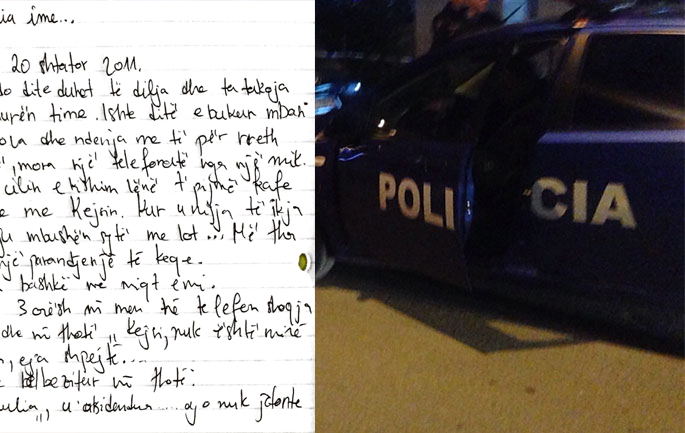 ia ime...
20 shtator 2011.
do ditë duhet të dilja dhe ta takoja
urën time. Ishte ditë e bukur mbas
ola dhe ndenja me të për rreth
mora një telefonatë nga një mik.
cilin e kishim lënë të pijmë kafe
e me Kejsin. Kur u nisja të ikja
mbushën sytë me lot... Më tha
një parandjenjë të keqe.
bashkë me miqt e mi.
3 orësh më merr në telefon shoqja
dhe më thotë "Kejsi, nuk është mirë
eja shpejt...
belbëzitur më thotë:
u aksidentua... ajo nuk jetonte
POLICIA